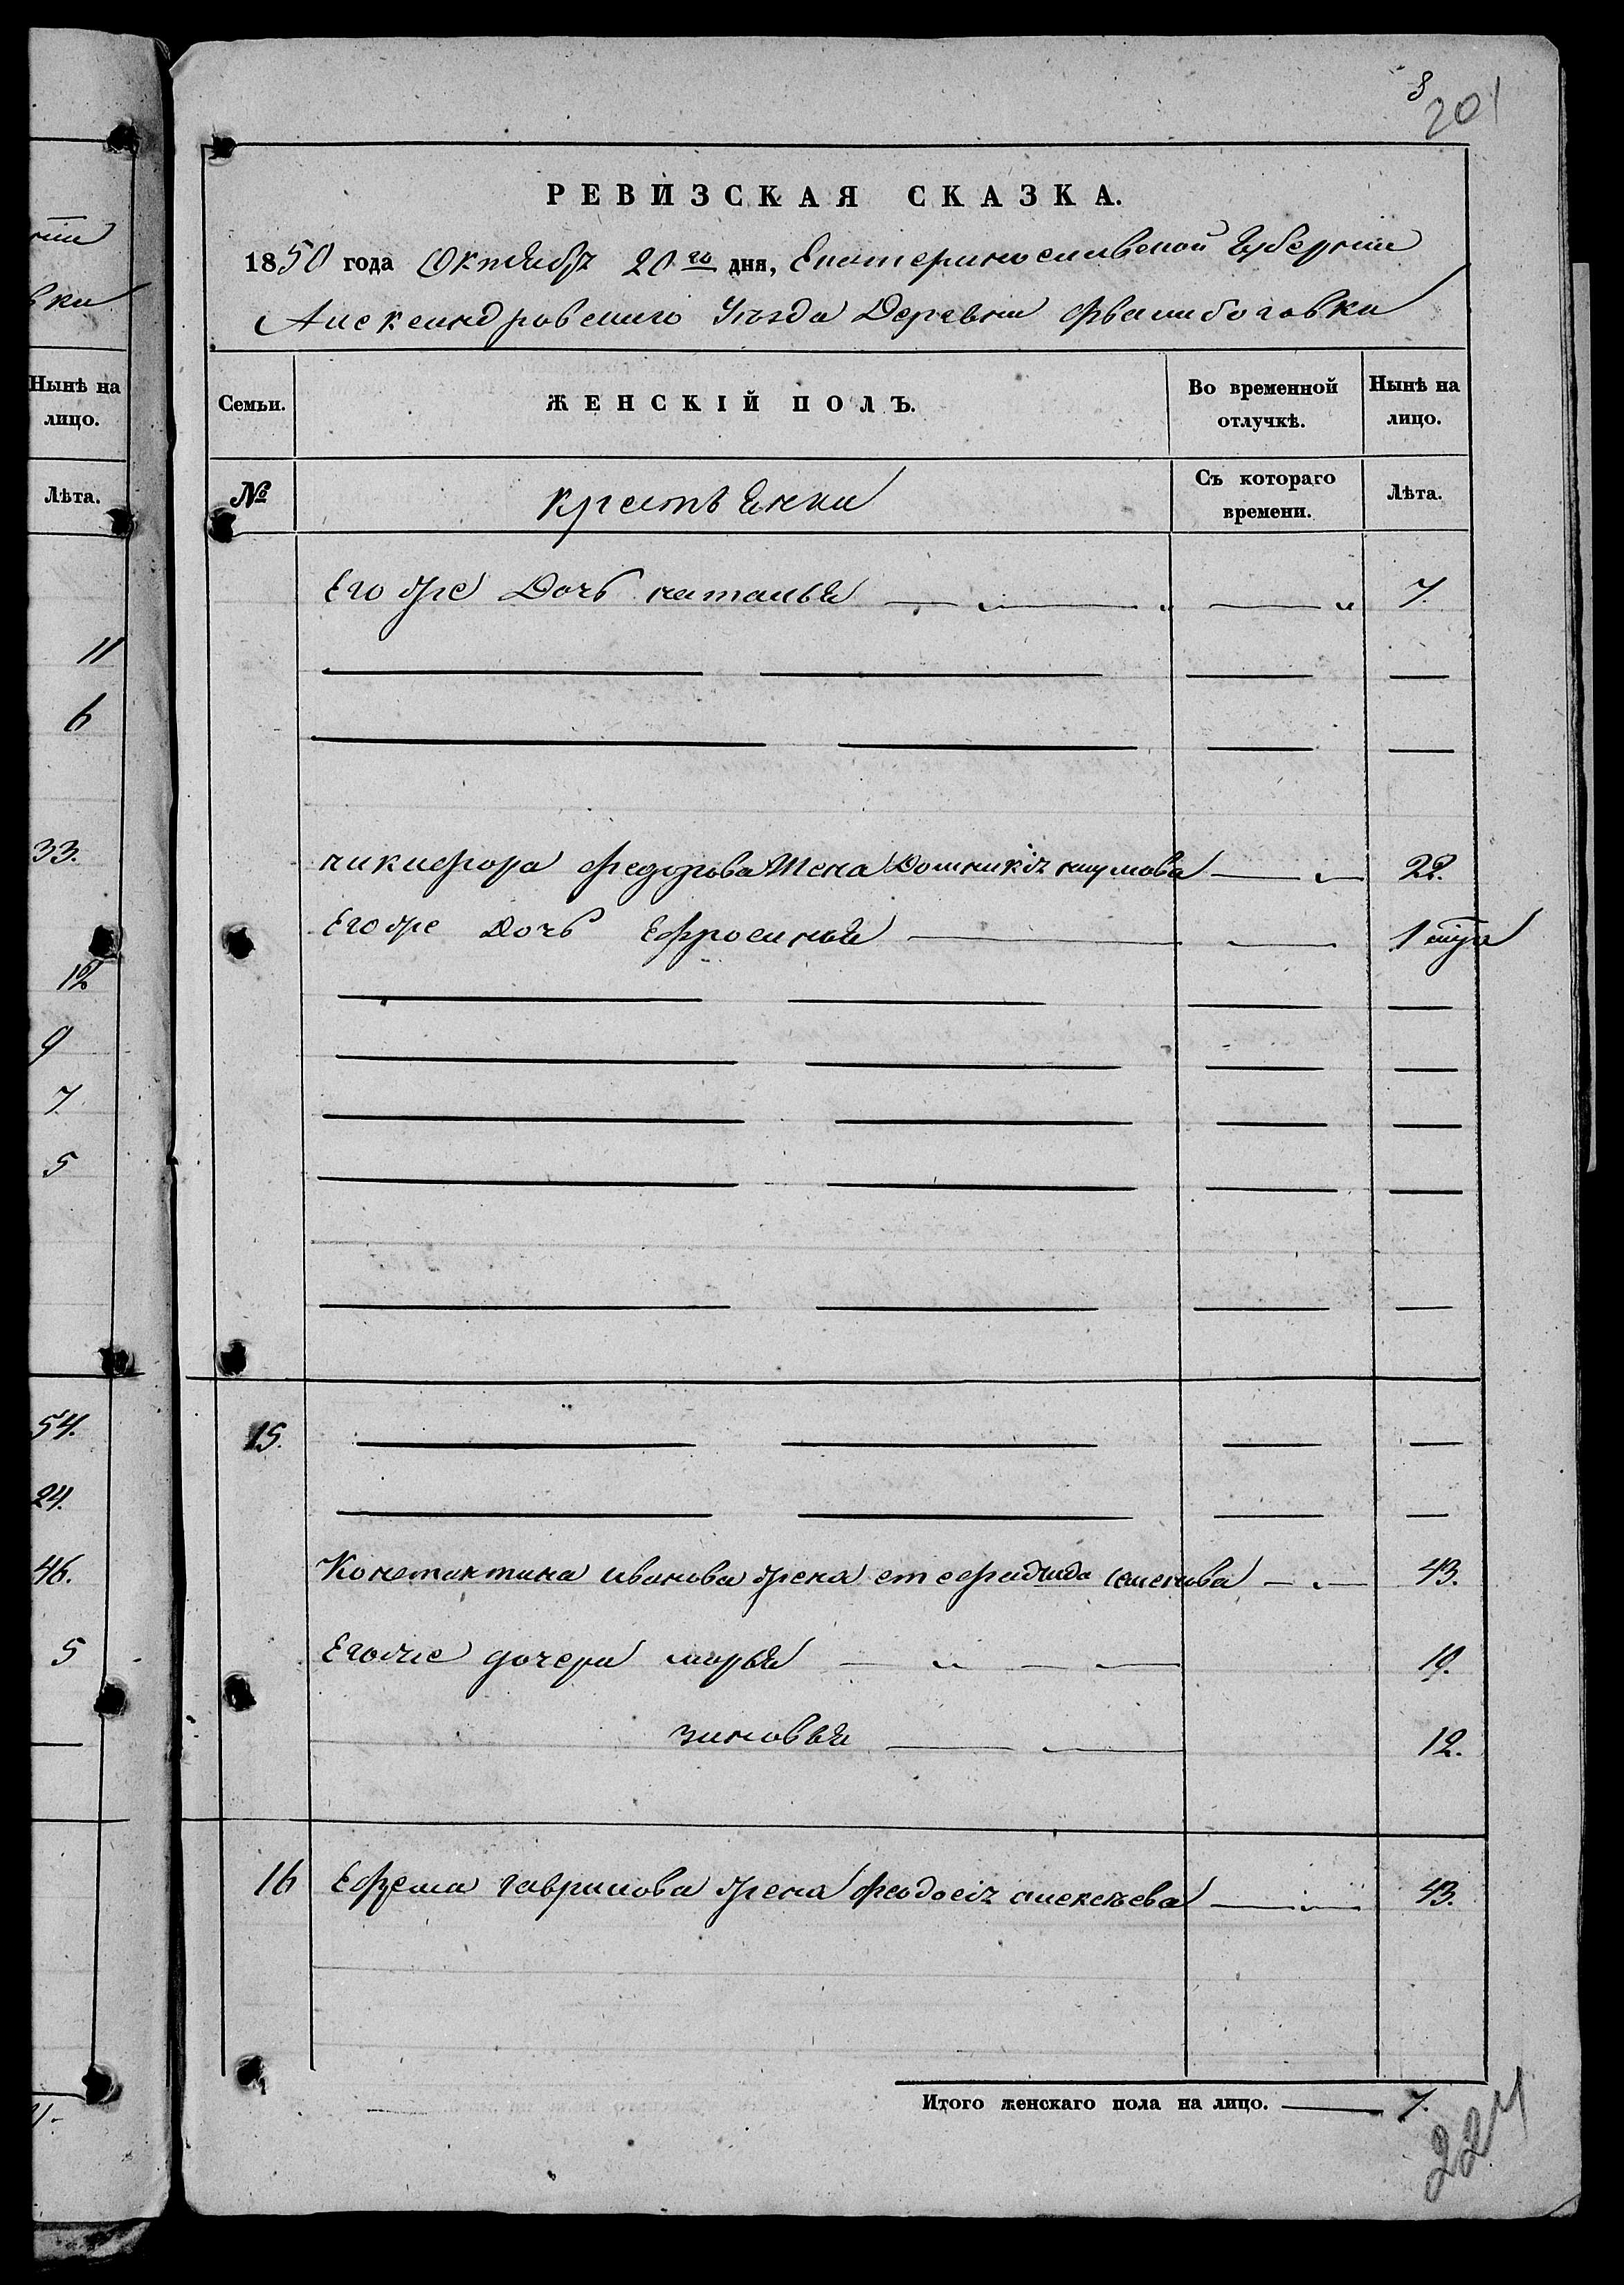 8
201
РЕВИЗСКАЯ СКАЗКА.
1850 года Октября 20го дня, Екатеринославской Губернии
Александровскаго Уѣзда Деревни
Семьи. ЖЕНСКІЙ ПОЛЪ. Во временной отлучкѣ. Нынѣ на лицо.
№ крестьянки Съ котораго времени. Лѣта.
Его же Дочь наталья 7.
никифора федорова Жена Домникія наумова 22.
Его же Дочь Ефросинья 1
15.
Константина иванова жена степанида 43.
Его же дочери марья 19.
зиновья 12.
16 Ефрема гаврилова жена феодосія алексѣева 43.
Итого женскаго пола на лицо. 7.
224
ніи
вки
Нынѣ на
лицо.
Лѣта.
11
6
33.
12
9
7
5
54.
24.
46.
5